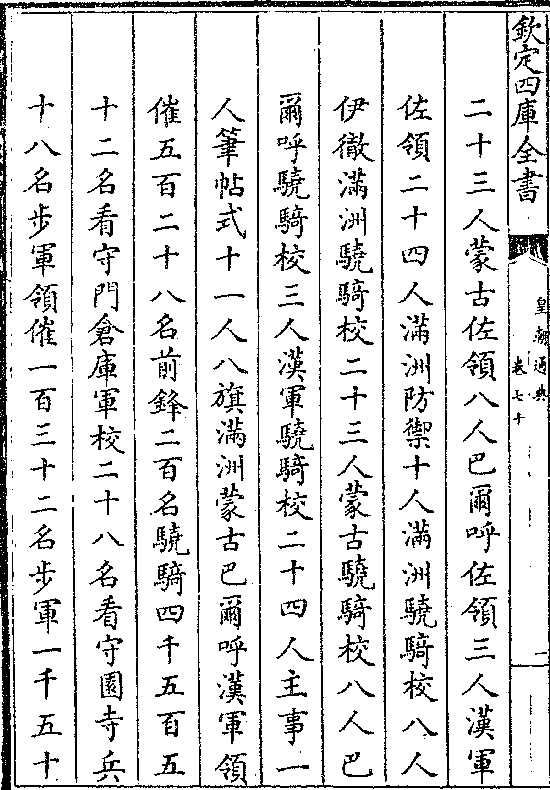 欽定四庫全書
皇朝通典
卷七十
二
二十三人蒙古佐領八人巴爾呼佐領三人漢軍
佐領二十四人滿洲防禦十人滿洲驍騎校八人
伊徹滿洲驍騎校二十三人蒙古驍騎校八人巴
爾呼驍騎校三人漢軍驍騎校二十四人主事一
人筆帖式十一人八旗滿洲蒙古巴爾呼漢軍領
催五百二十八名前鋒二百名驍騎四千五百五
十二名看守門倉庫軍校二十八名看守園寺兵
十八名步軍領催一百三十二名步軍一千五十